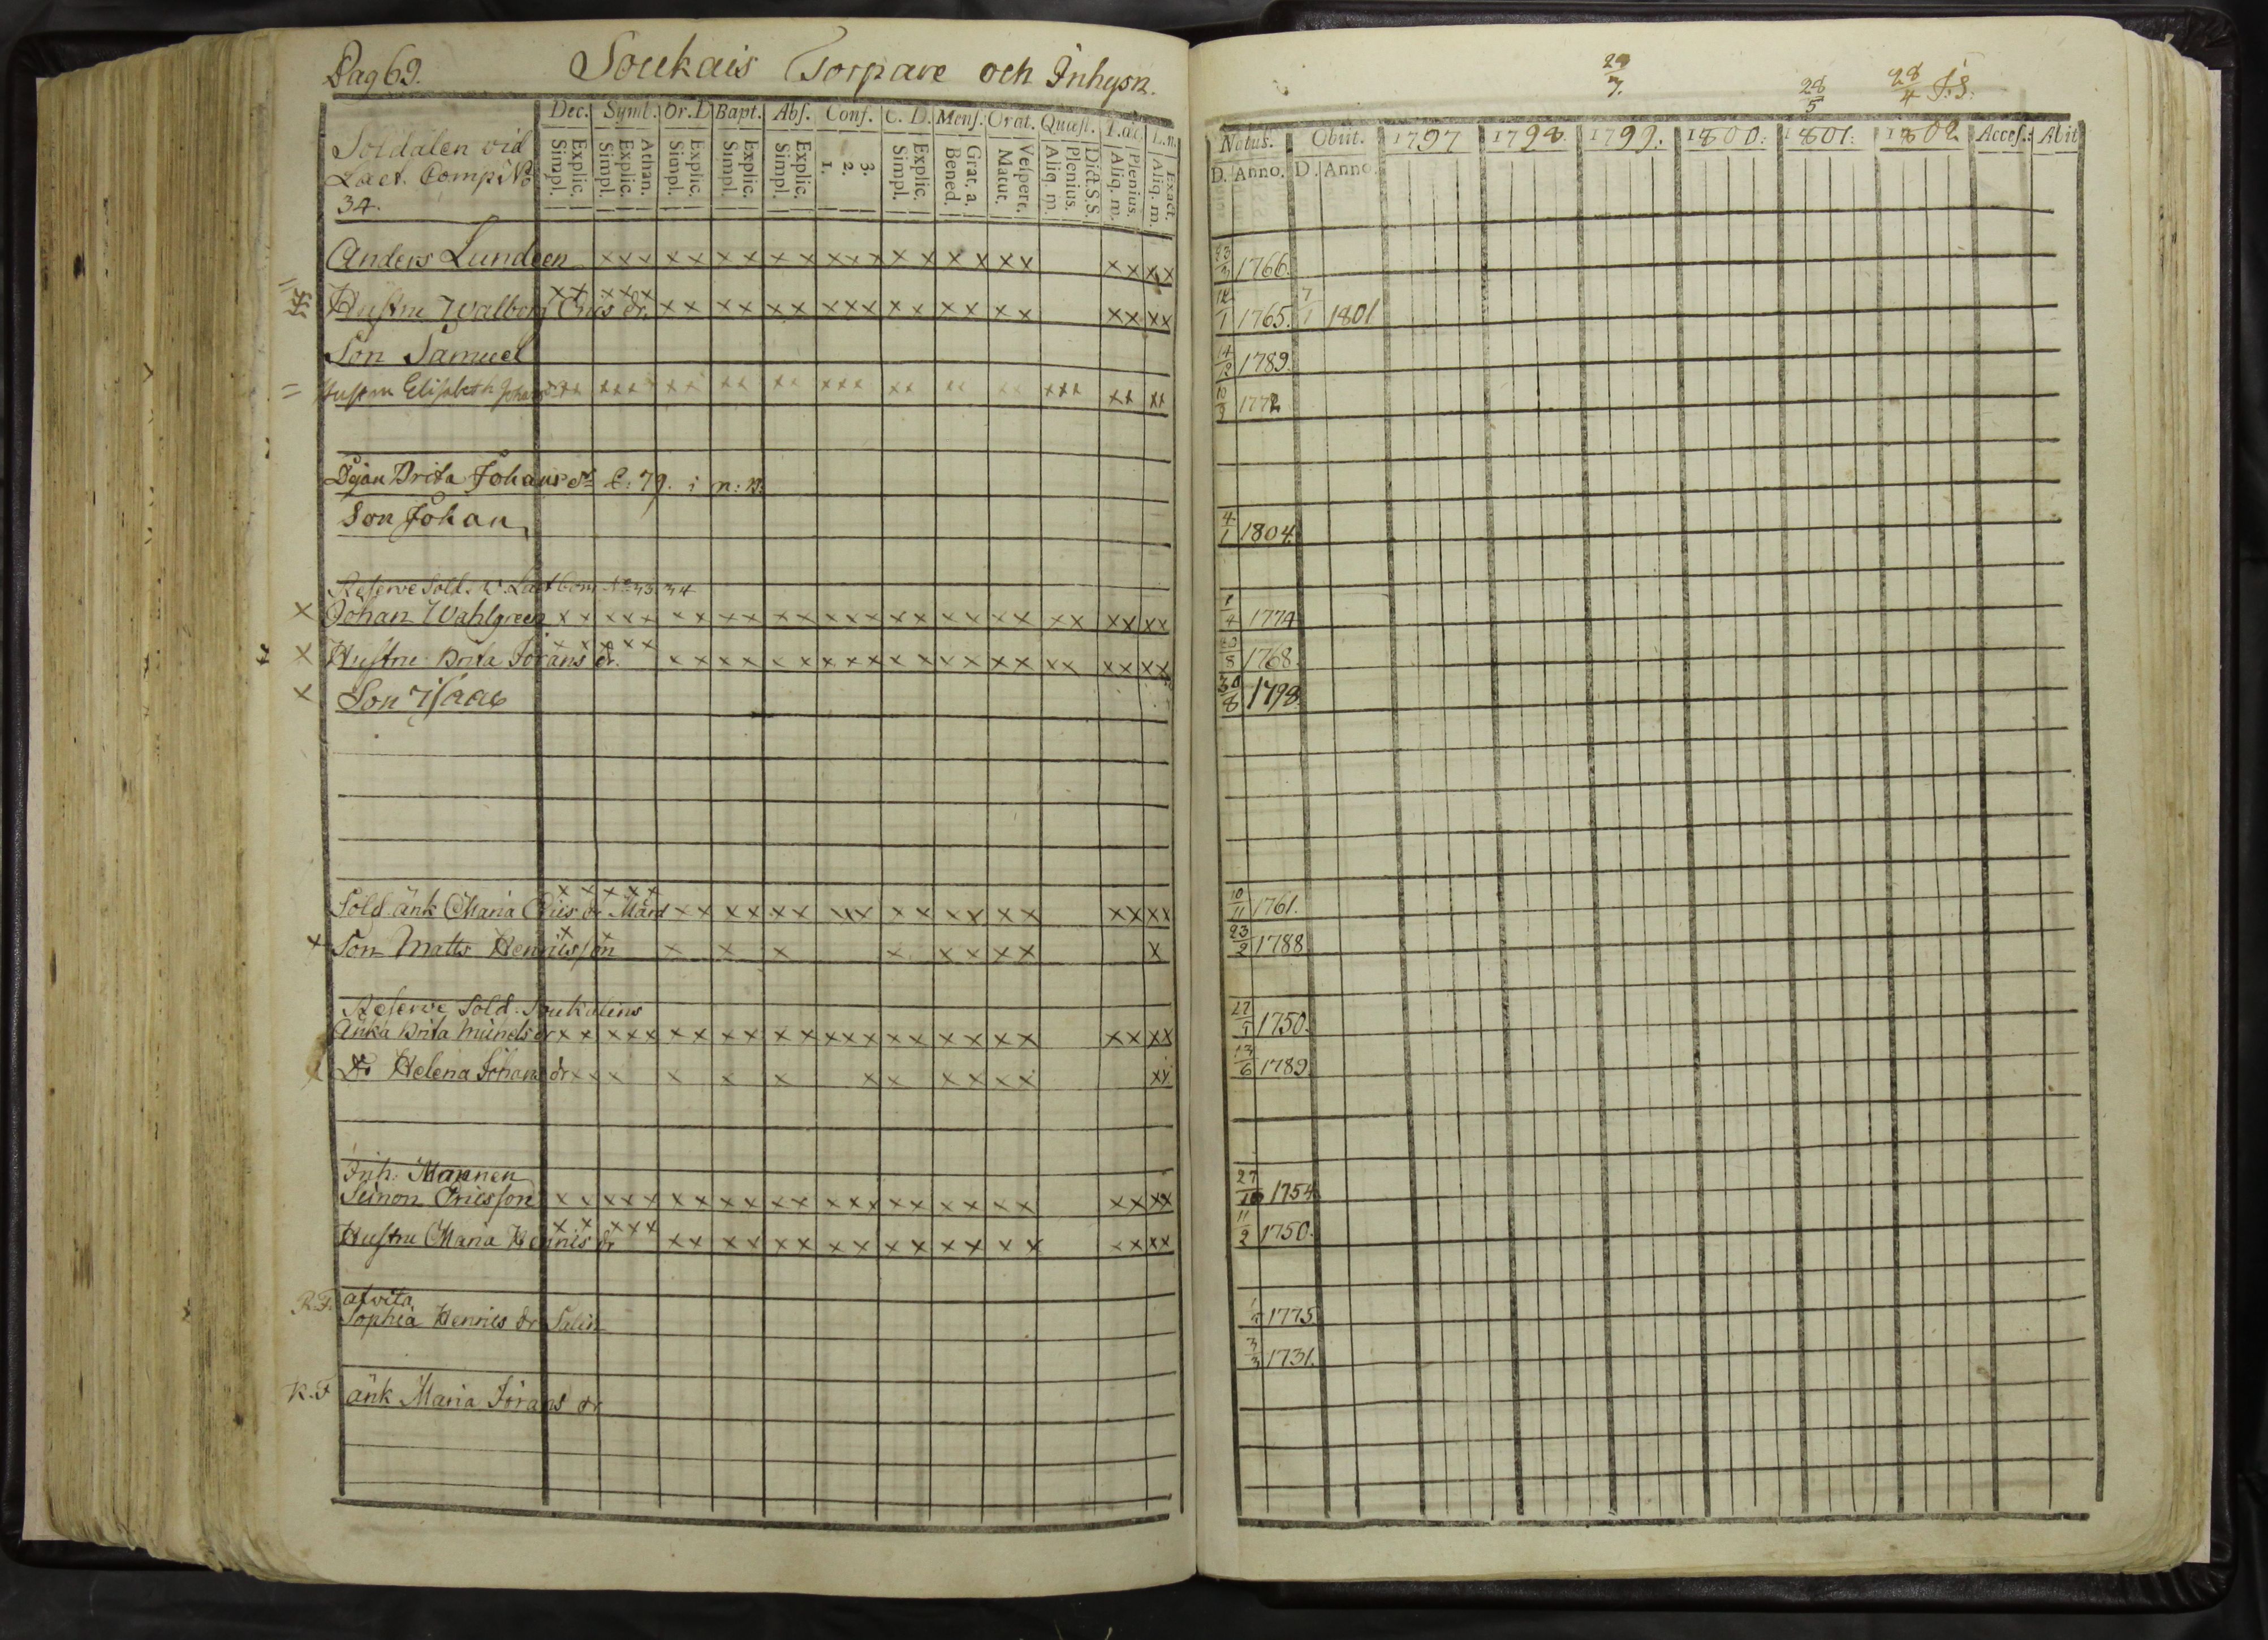 Pag 69. Soukais Torpare och Inhysn.
Dec. Symb. Or. D. Bapt. Abs. Conf. C. D. Mens. Orat. Quæst. T. œc. L. n.
Explic. Simpl. Athan. Explic. Simpl. Explic. Simpl. Explic. Simpl. Explic. Simpl. 3. 2. 1. Explic. Simpl. Grat. a. Bened. Vespert. Matut. Dict. S.S. Plenius. Aliq. m. Plenius. Aliq. m. Exact. Aliq. m.
Soldaten vid
Laet. Comp: No
34.
Anders Lundeen x x x x x x x x x x x x x x x x x x x x x x
Hustru Walborg Eriks dr. x x x x x x x x x x x x x x x x x x x x x x x x
Son Samuel
= Hustru Elisabeth Johans d. x x x x x x x x x x x x x x x x x x x x x x x x x x x x
Pigan Brita Johans dr p: 79. i n: B.
Son Johan
Reserve Sold. w. Laet Com. No 33. 34
x Johan Wahlgreen x x x x x x x x x x x x x x x x x x x x x x x x x x
x Hustru Brita Jörans dr. x x x x x x x x x x x x x x x x x x x x x x x x x x
x Son Isaac
Sold. änk Maria Eriks dr Mård x x x x x x x x x x x x x x x x x x x x x x x x
x Son Matts Hendriksson x x x x x x x x x x x
Reserve Sold. Soukalins
Änka Brita Michels dr x x x x x x x x x x x x x x x x x x x x x x x x
Dr Helena Johans dr x x x x x x x x x x x x x x x
Inh: Mannen
Simon Ericsson x x x x x x x x x x x x x x x x x x x x x x x x
Hustru Maria Henriks dr x x x x x x x x x x x x x x x x x x x x x x x
R. F. afvita
Sophia Henriks dr Salin
R. F. änk Maria Jörans dr
29/7. 28/5 28/4 J. S.
Natus. Obiit. 1797 1798. 1799. 1800. 1801. 1802 Acces. Abit
D. Anno. D. Anno.
23/3 1766.
12/1 1765. 7/1 1801
14/12 1789.
10/9 1772
4/1 1804.
1/4 1774
1768.
30/8 1798.
10/11 1761.
23/2 1788
1750.
13/6 1789.
27/10 1754
11/2 1750.
1775.
3/3 1731.